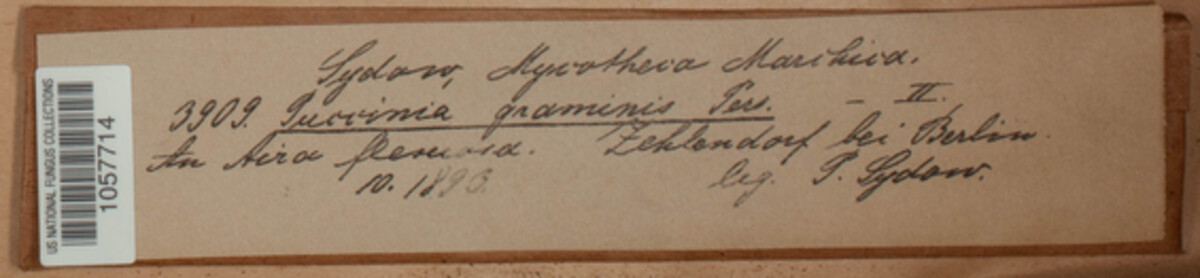 Sydow, Mycotheca Marchica.
3909. Puccinia graminis Pers. - II.
An Aira flexuosa. Zehlendorf bei Berlin.
10. 1893. leg. P. Sydow.
US NATIONAL FUNGUS COLLECTIONS
1057714